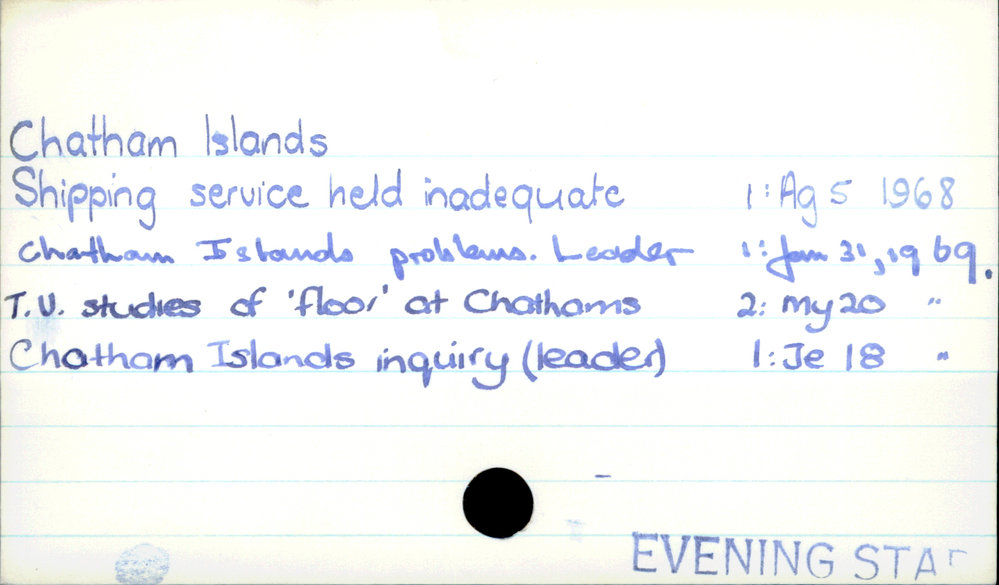 Chatham Islands
Shipping service held inadequate 1: Ag 5 1968
Chatham Islands problems. Leader 1: Jan 31, 1969.
T.V. studies of 'floor' at Chathams 2: My 20 "
Chatham Islands inquiry (leader) 1: Je 18 "
EVENING STAR